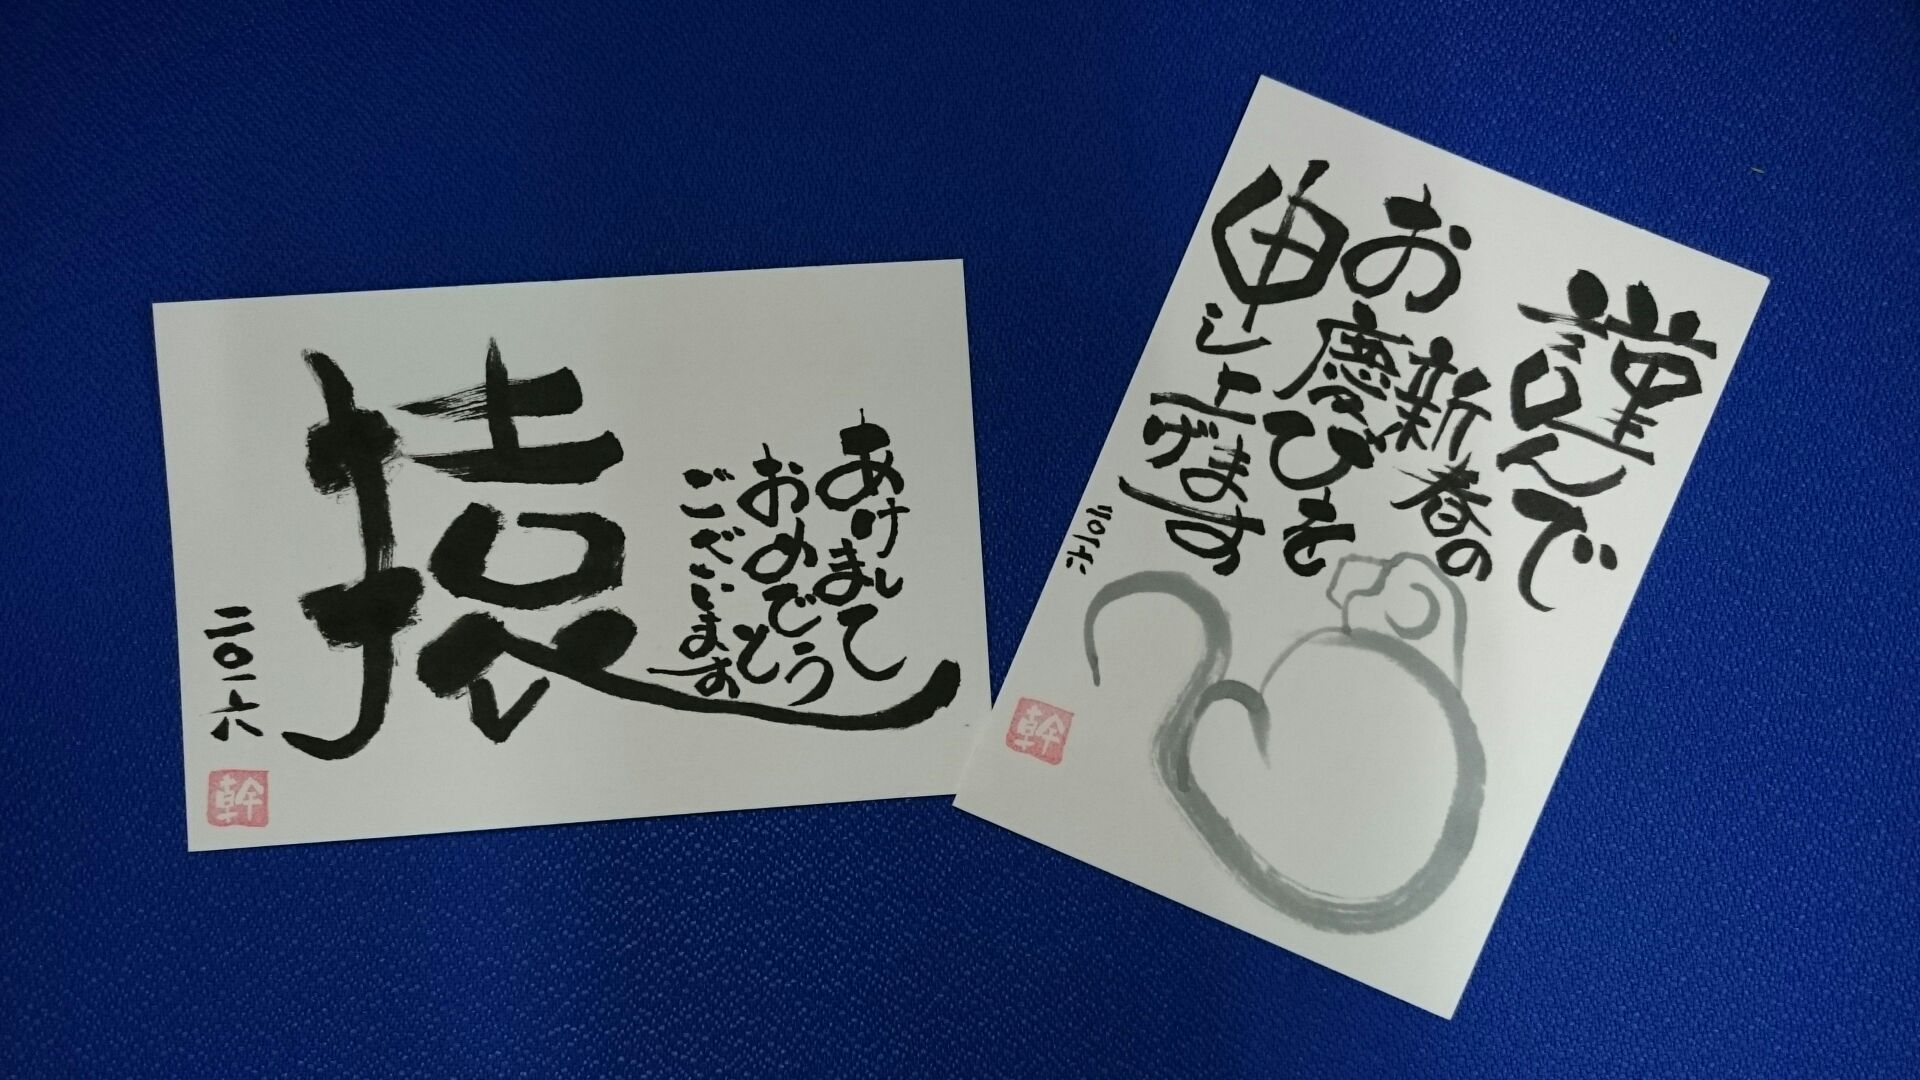 猿
あけまして
おめでとう
ございます
二〇一六
幹
謹んで
新春の
お慶びを
申し上げます
二〇一六
幹